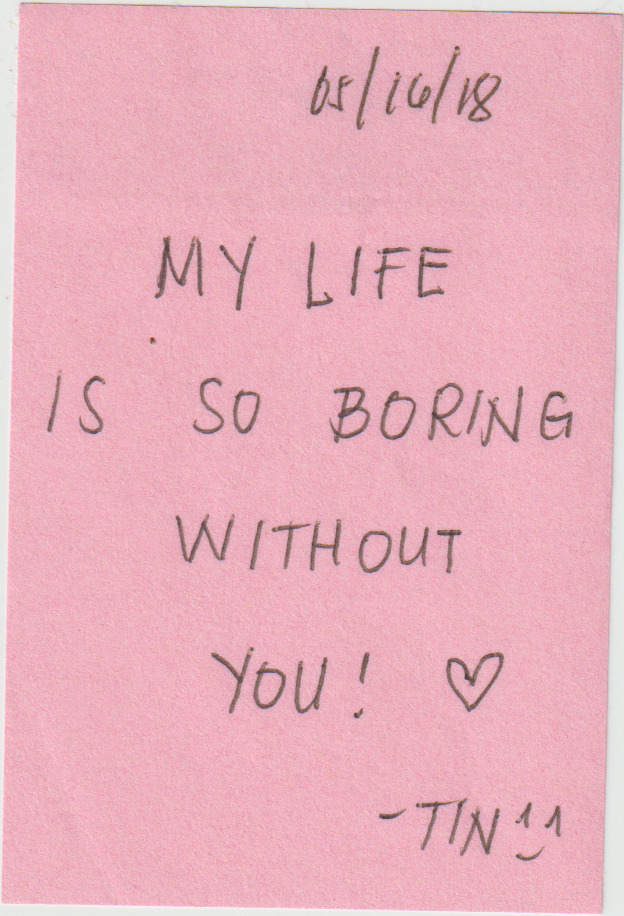 05/16/18
MY LIFE
IS SO BORING
WITHOUT
YOU! ♡
-TIN